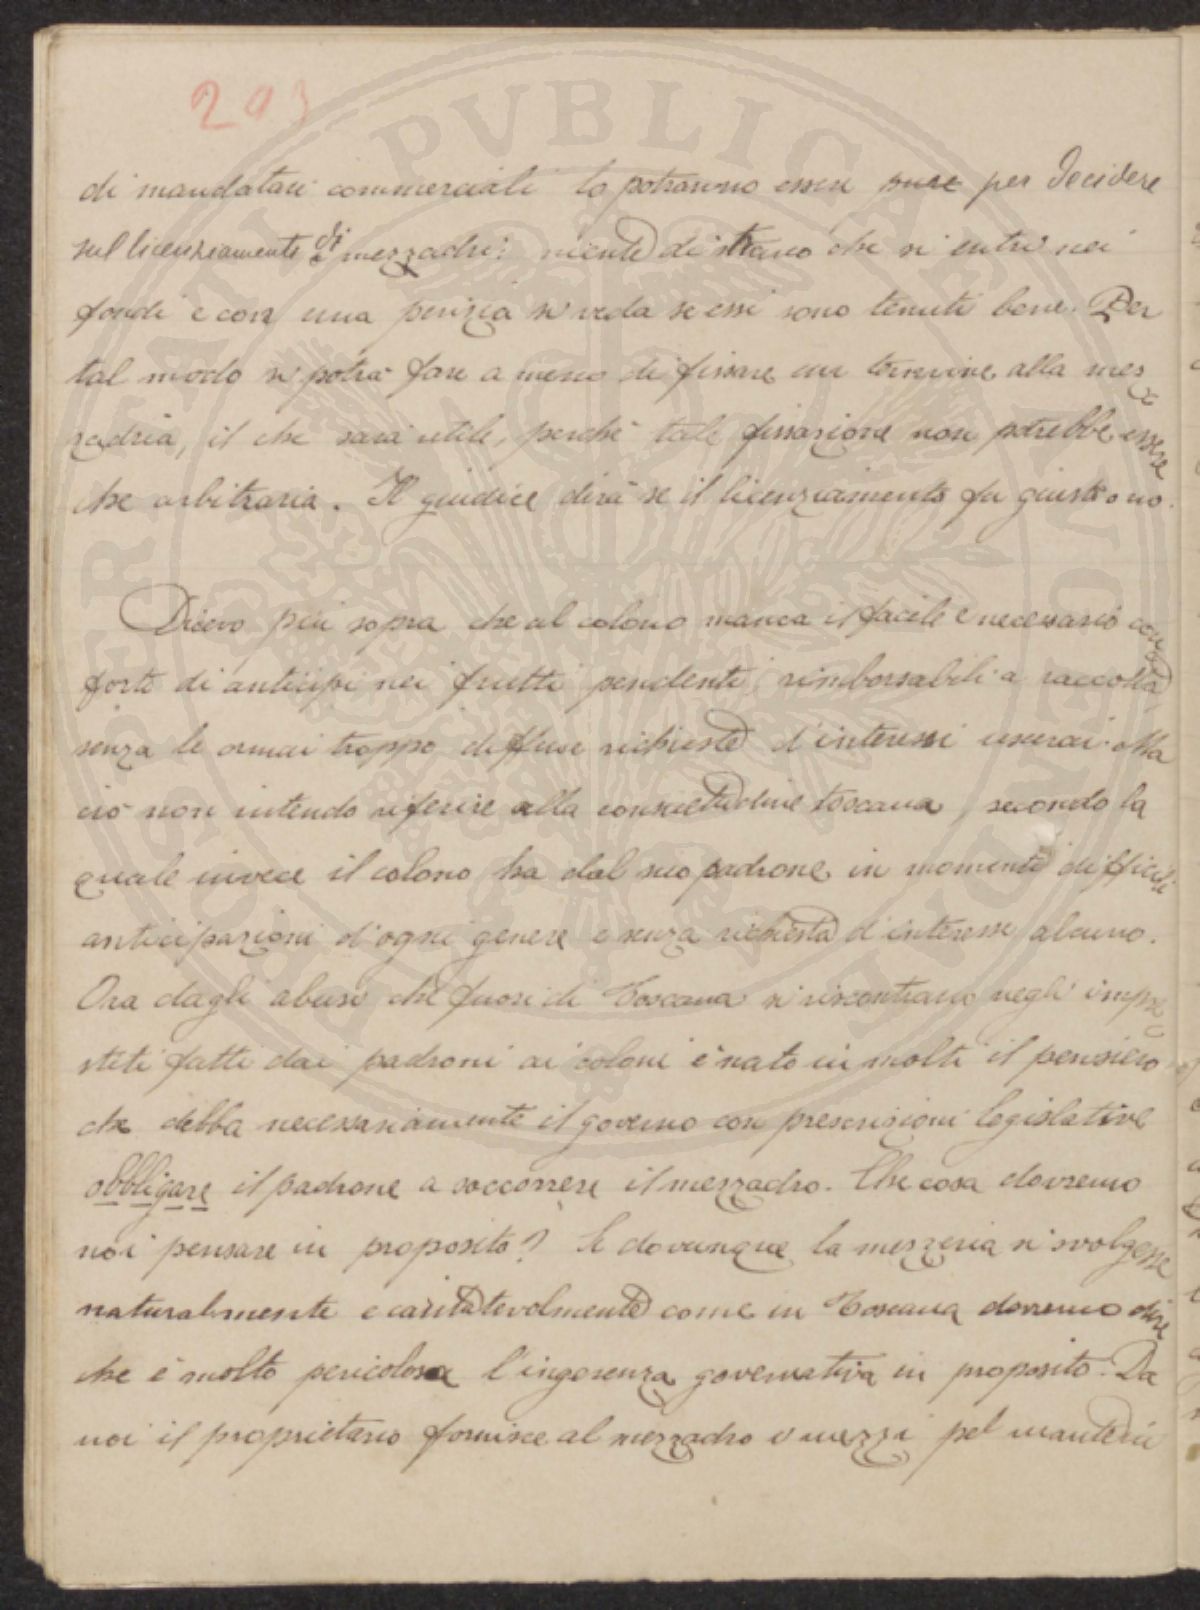 293
di mandatari commerciali lo potranno essere pure per decidere
sul licenziamento di mezzadri: niente di strano che si entri nei
fondi e con una perizia si veda se essi sono tenuti bene. Per
tal modo si potrà fare a meno di fissare un termine alla mez
zadria, il che sarà utile, perchè tale fissazione non potrebbe essere
che arbitraria. Il giudice dirà se il licenziamento fu giusto o no.
Dicevo più sopra che al colono manca il facile e necessario con
forto di anticipi nei frutti pendenti, rimborsabili a raccolta
senza le ormai troppo diffuse richieste d'interessi usurai. Ma
ciò non intendo riferire alla consuetudine toscana, secondo la
quale invece il colono ha dal suo padrone in momenti difficili
anticipazioni d'ogni genere e senza richiesta d'interesse alcuno.
Ora dagli abusi che fuori di Toscana si riscontrano negli impre
stiti fatti dai padroni ai coloni è nato in molti il pensiero
che debba necessariamente il governo con prescrizioni legislative
obbligare il padrone a soccorrere il mezzadro. Che cosa dovremo
noi pensare in proposito? Se dovunque la mezzeria si svolgesse
naturalmente e caritatevolmente come in Toscana dovremo dire
che è molto pericolosa l'ingerenza governativa in proposito. Da
noi il proprietario fornisce al mezzadro i mezzi pel manteni
PUBLICAE